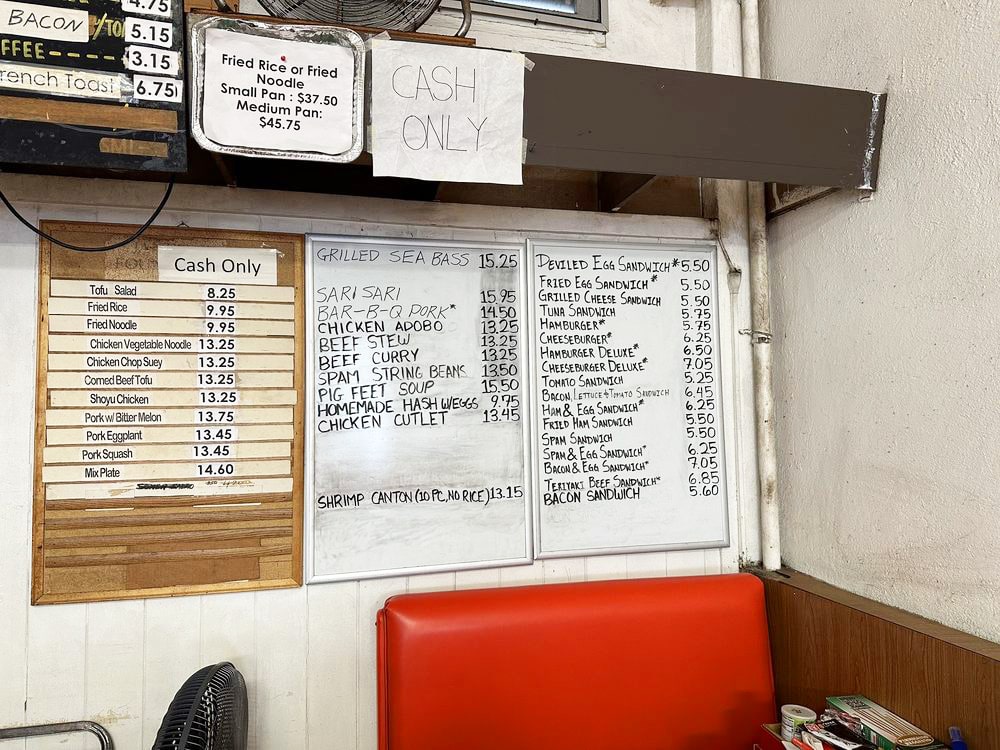 4.75
BACON /TO 5.15
FFEE ---- 3.15
rench Toast 6.75
Fried Rice or Fried
Noodle
Small Pan : $37.50
Medium Pan:
$45.75
CASH
ONLY
Cash Only
Tofu Salad 8.25
Fried Rice 9.95
Fried Noodle 9.95
Chicken Vegetable Noodle 13.25
Chicken Chop Suey 13.25
Corned Beef Tofu 13.25
Shoyu Chicken 13.25
Pork w/ Bitter Melon 13.75
Pork Eggplant 13.45
Pork Squash 13.45
Mix Plate 14.60
GRILLED SEA BASS 15.25
SARI SARI 15.95
BAR-B-Q PORK* 14.50
CHICKEN ADOBO 13.25
BEEF STEW 13.25
BEEF CURRY 13.25
SPAM STRING BEANS 13.50
PIG FEET SOUP 15.50
HOMEMADE HASH W/EGGS 9.95
CHICKEN CUTLET 13.45
SHRIMP CANTON (10 PC, NO RICE) 13.15
DEVILED EGG SANDWICH* 5.50
FRIED EGG SANDWICH* 5.50
GRILLED CHEESE SANDWICH 5.50
TUNA SANDWICH 5.75
HAMBURGER* 5.75
CHEESEBURGER* 6.25
HAMBURGER DELUXE* 6.50
CHEESEBURGER DELUXE* 7.05
TOMATO SANDWICH 5.25
BACON, LETTUCE & TOMATO SANDWICH 6.45
HAM & EGG SANDWICH* 6.25
FRIED HAM SANDWICH 5.50
SPAM SANDWICH 5.50
SPAM & EGG SANDWICH* 6.25
BACON & EGG SANDWICH* 7.05
TERIYAKI BEEF SANDWICH* 6.85
BACON SANDWICH 5.60